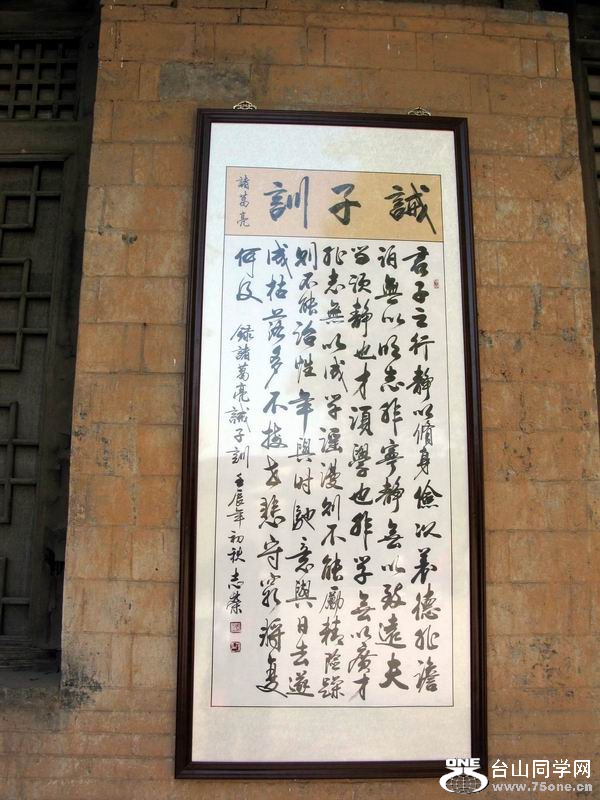 誡子訓
諸葛亮
君子之行靜以脩身儉以養德非澹
泊無以明志非寧靜無以致遠夫
学須靜也才須學也非学無以廣才
非志無以成学滛漫則不能勵精險躁
則不能治性年與时馳意與日去遂
成枯落多不接世悲守窮將复
何及 録諸葛亮誡子訓 壬辰年初秋志榮
ONE 台山同学网
www.75one.cn